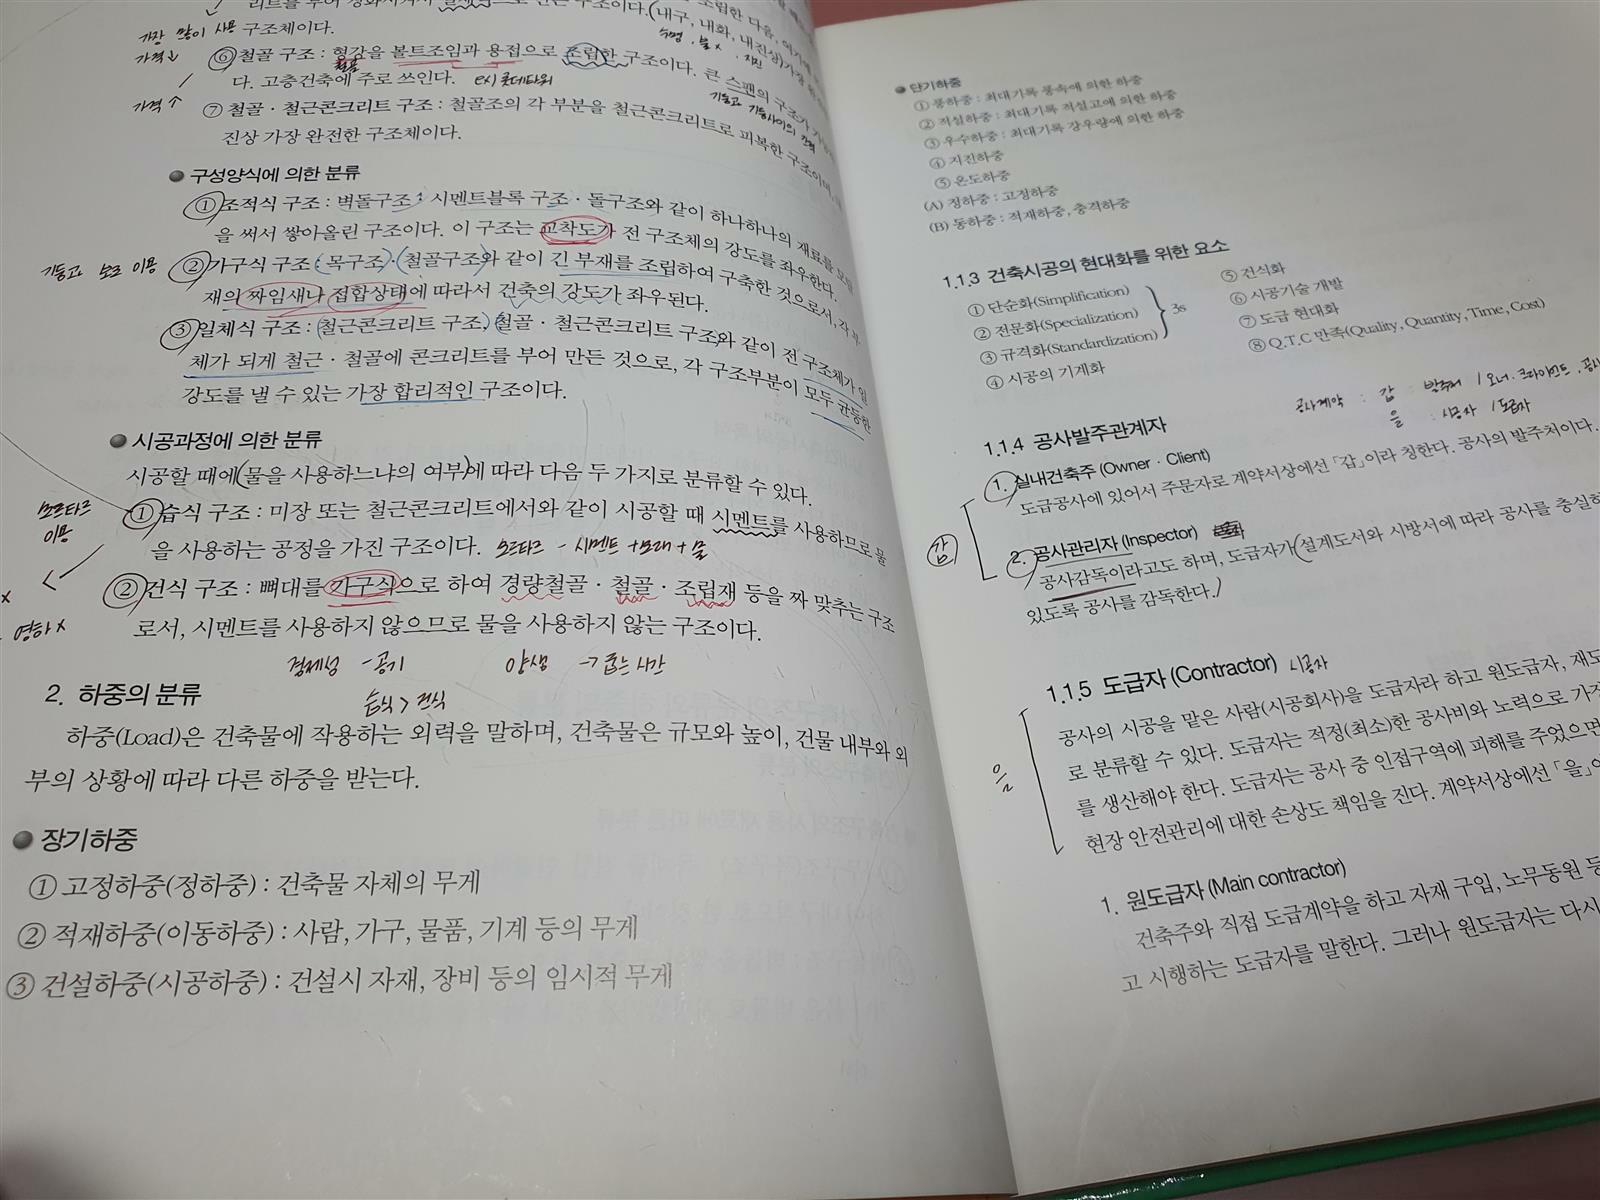 리트를 부어 강화시켜서 일체식으로 만든 구조이다.(내구, 내화, 내진상)가장
가장 많이 사용 구조체이다.
수명, 불x, 지진
가격↓ ⑥ 철골 구조 : 형강을 볼트조임과 용접으로 조립한 구조이다. 큰 스팬의 구조가
철골
다. 고층건축에 주로 쓰인다. ex) 롯데타워
기둥과 기둥사이의 간격
가격↑ ⑦ 철골 · 철근콘크리트 구조 : 철골조의 각 부분을 철근콘크리트로 피복한 구조이며,
진상 가장 완전한 구조체이다.
● 구성양식에 의한 분류
① 조적식 구조 : 벽돌구조 · 시멘트블록 구조 · 돌구조와 같이 하나하나의 재료를
을 써서 쌓아올린 구조이다. 이 구조는 교착도가 전 구조체의 강도를 좌우한다.
기둥과 보로 이용 ② 가구식 구조 : 목구조 · (철골구조)와 같이 긴 부재를 조립하여 구축한 것으로서, 각 부
재의 짜임새나 접합상태에 따라서 건축의 강도가 좌우된다.
③ 일체식 구조 : (철근콘크리트 구조, 철골 · 철근콘크리트 구조)와 같이 전 구조체가 일
체가 되게 철근 · 철골에 콘크리트를 부어 만든 것으로, 각 구조부분이 모두 균등한
강도를 낼 수 있는 가장 합리적인 구조이다.
● 시공과정에 의한 분류
시공할 때에(물을 사용하느냐의 여부)에 따라 다음 두 가지로 분류할 수 있다.
모르타르
이용
① 습식 구조 : 미장 또는 철근콘크리트에서와 같이 시공할 때 시멘트를 사용하므로 물
을 사용하는 공정을 가진 구조이다. 모르타르 - 시멘트 + 모래 + 물
② 건식 구조 : 뼈대를 가구식으로 하여 경량철골 · 철골 · 조립재 등을 짜 맞추는 구조
x
영하 x
로서, 시멘트를 사용하지 않으므로 물을 사용하지 않는 구조이다.
경제성 - 공기 양생 → 굳는 시간
습식 > 건식
2. 하중의 분류
하중(Load)은 건축물에 작용하는 외력을 말하며, 건축물은 규모와 높이, 건물 내부와 외
부의 상황에 따라 다른 하중을 받는다.
● 장기하중
① 고정하중(정하중) : 건축물 자체의 무게
② 적재하중(이동하중) : 사람, 가구, 물품, 기계 등의 무게
③ 건설하중(시공하중) : 건설시 자재, 장비 등의 임시적 무게
● 단기하중
① 풍하중 : 최대기록 풍속에 의한 하중
② 적설하중 : 최대기록 적설고에 의한 하중
③ 우수하중 : 최대기록 강우량에 의한 하중
④ 지진하중
⑤ 온도하중
(A) 정하중 : 고정하중
(B) 동하중 : 적재하중, 충격하중
1.1.3 건축시공의 현대화를 위한 요소
① 단순화(Simplification)
② 전문화(Specialization)
③ 규격화(Standardization)
3s
④ 시공의 기계화
⑤ 건식화
⑥ 시공기술 개발
⑦ 도급 현대화
⑧ Q.T.C 만족(Quality, Quantity, Time, Cost)
공사계약 : 갑 : 발주처 / 오너. 크라이언트.
을 : 시공자 / 도급자
1.1.4 공사발주관계자
1. 실내건축주 (Owner · Client)
도급공사에 있어서 주문자로 계약서상에선 「갑」이라 칭한다. 공사의 발주처이다.
갑
2. 공사관리자 (Inspector)
공사감독이라고도 하며, 도급자가(설계도서와 시방서에 따라 공사를 충실히
있도록 공사를 감독한다.)
1.1.5 도급자 (Contractor) 시공자
공사의 시공을 맡은 사람(시공회사)을 도급자라 하고 원도급자, 재도
로 분류할 수 있다. 도급자는 적정(최소)한 공사비와 노력으로 가장
을
를 생산해야 한다. 도급자는 공사 중 인접구역에 피해를 주었으면
현장 안전관리에 대한 손상도 책임을 진다. 계약서상에선 「을」이
1. 원도급자 (Main contractor)
건축주와 직접 도급계약을 하고 자재 구입, 노무동원 등
고 시행하는 도급자를 말한다. 그러나 원도급자는 다시